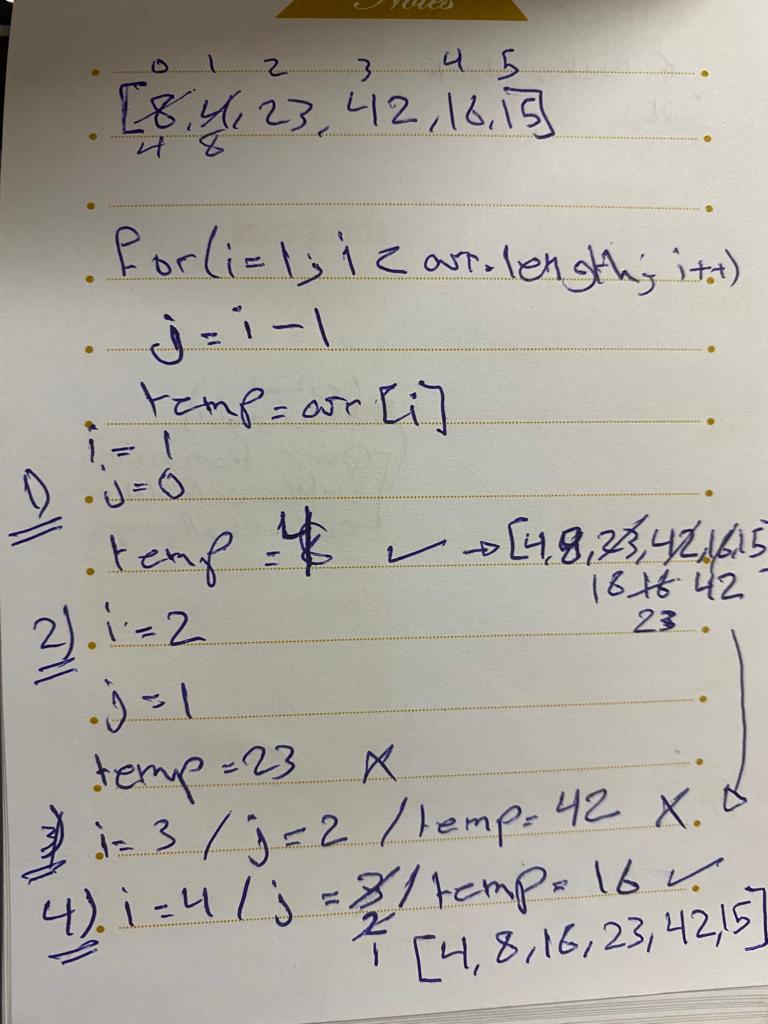 Notes
0 1 2 3 4 5
[8, 4, 23, 42, 16, 15]
4 8
for(i=1; i < arr.length; i++)
j = i - 1
temp = arr [i]
i = 1
1) j = 0
temp = 4 ✓ → [4, 8, 23, 42, 16, 15
16 16 42
23
2) i = 2
j = 1
temp = 23 X
i = 3 / j = 2 / temp = 42 X
4) i = 4 / j = 3 / temp = 16 ✓
2
1 [4, 8, 16, 23, 42, 15]